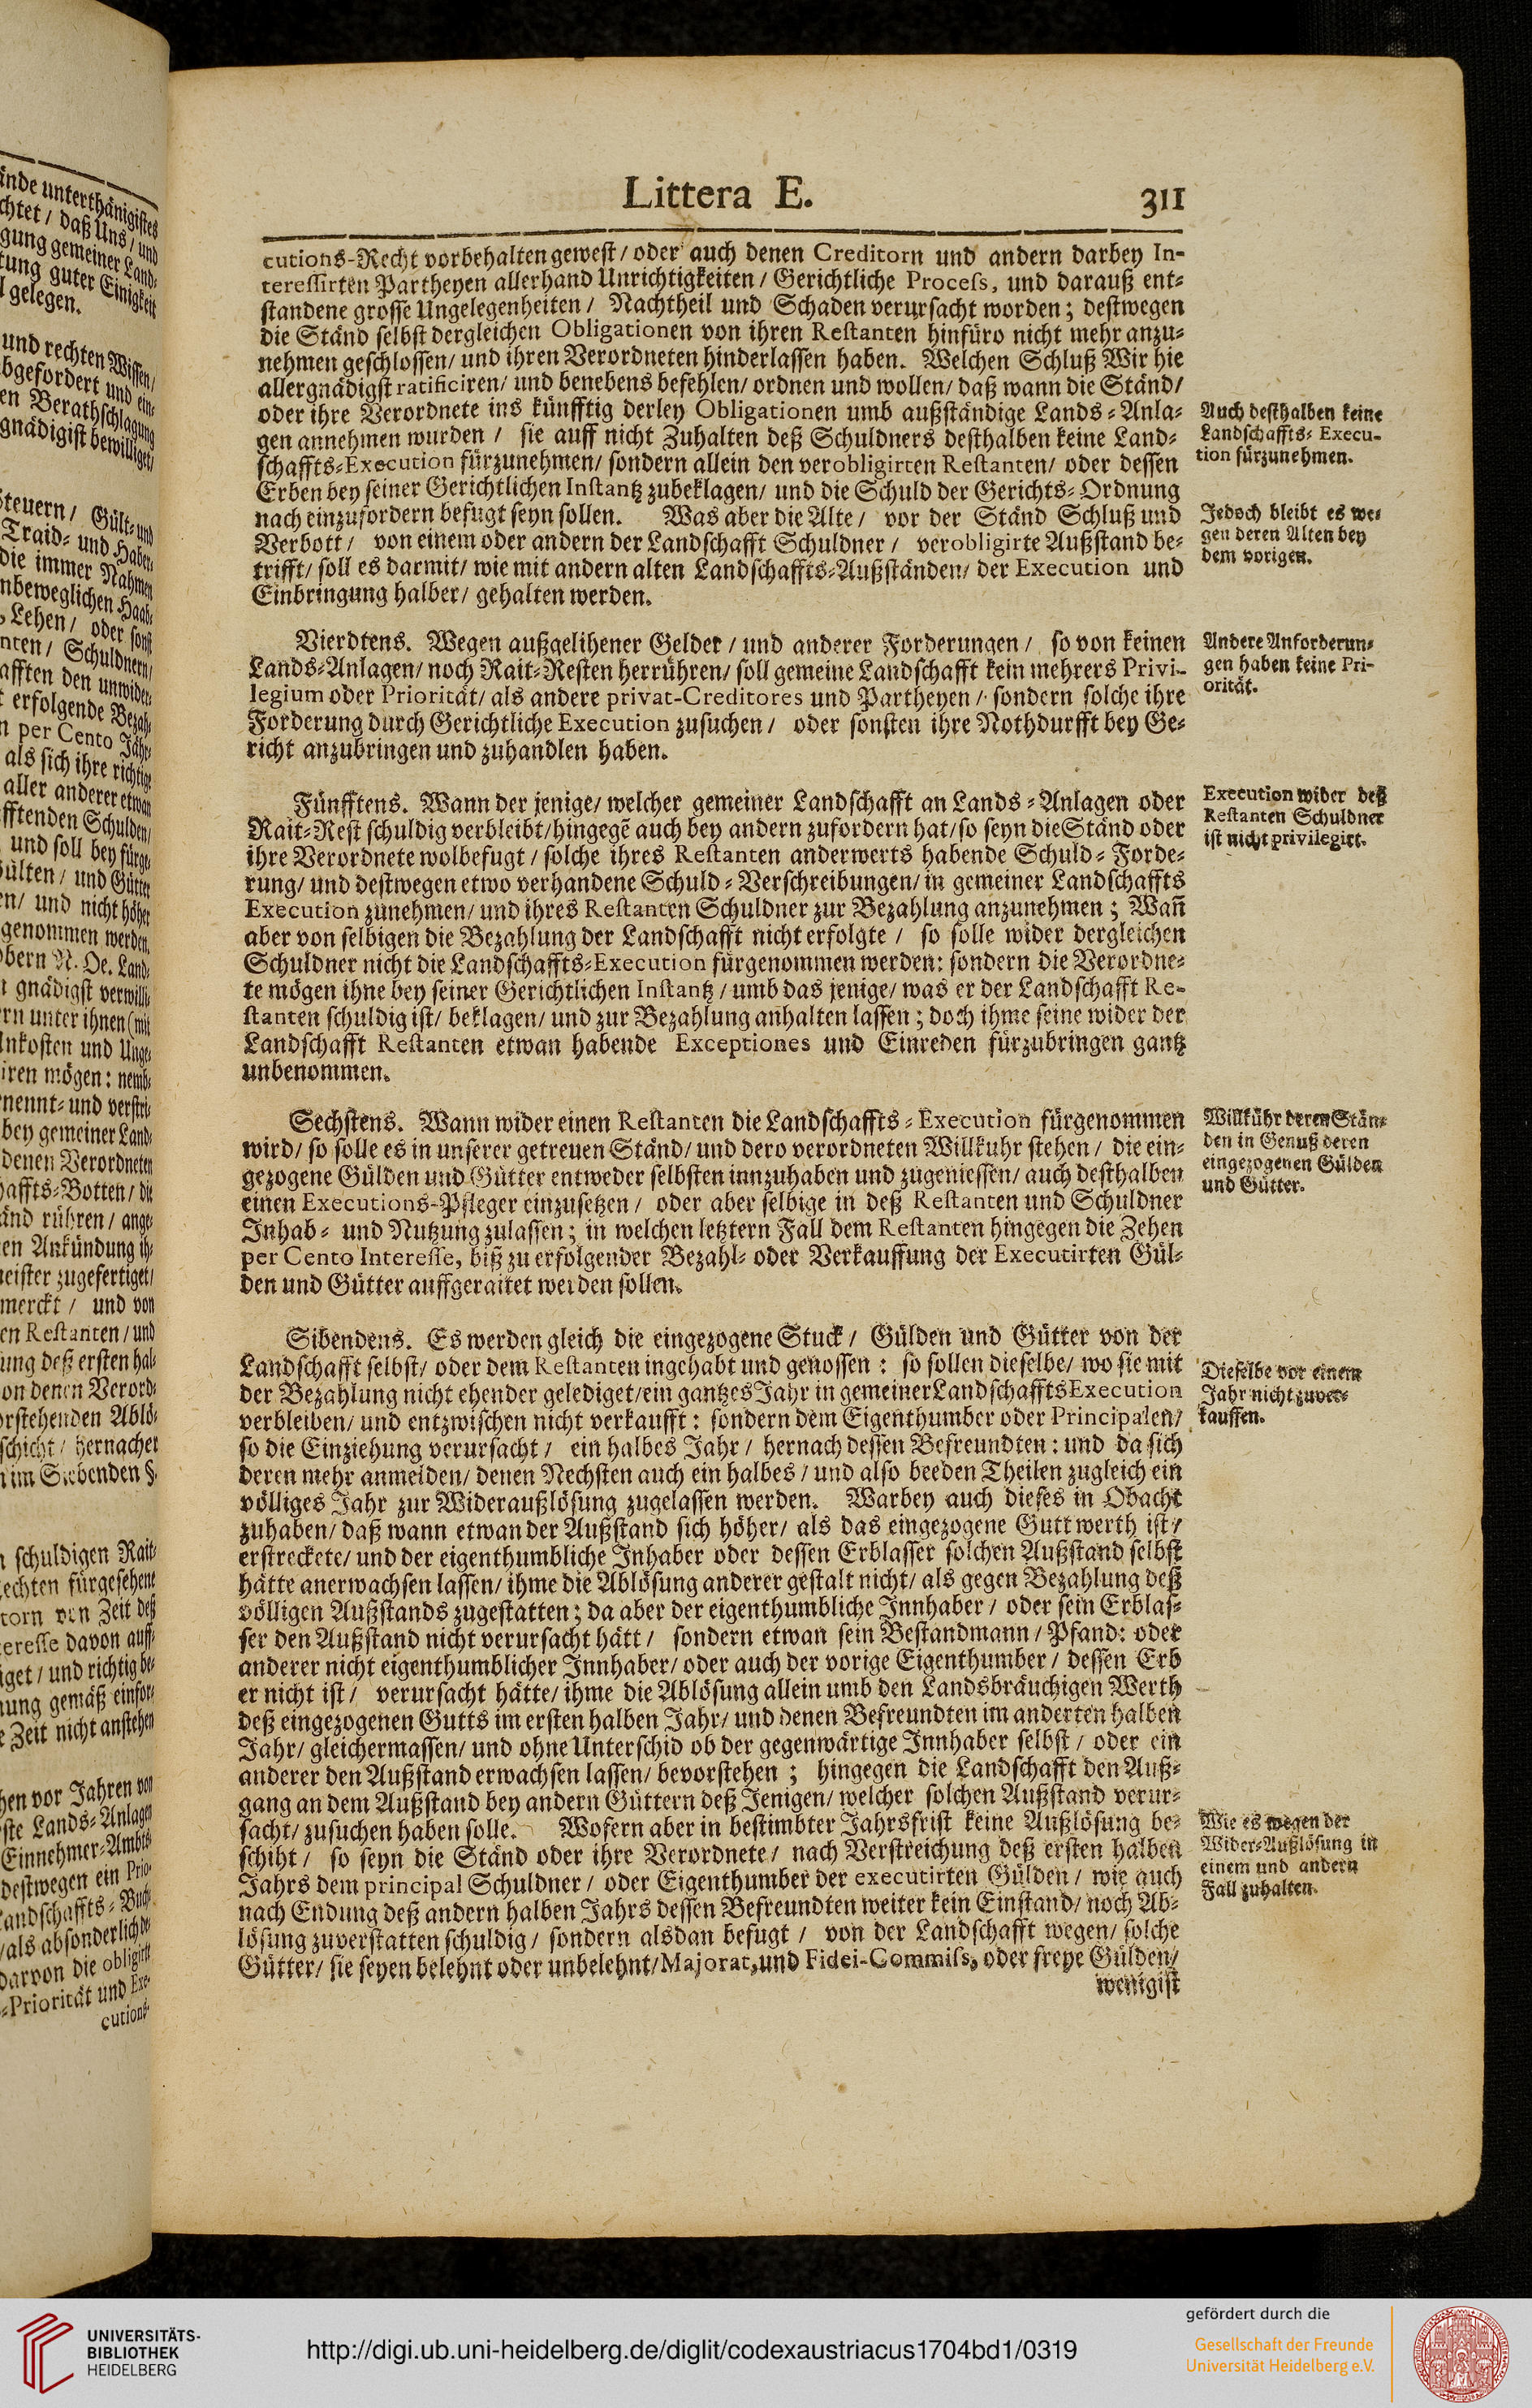 Littera E.
311
cutions-Recht vorbehalten gewest / oder auch denen Creditorn und andern darbey In-
teressirten Partheyen allerhand Unrichtigkeiten / Gerichtliche Process, und darauß ent-
standene grosse Ungelegenheiten / Nachtheil und Schaden verursacht worden; destwegen
die Ständ selbst dergleichen Obligationen von ihren Restanten hinfüro nicht mehr anzu-
nehmen geschlossen / und ihren Verordneten hinderlassen haben. Welchen Schluß Wir hie
allergnädigst ratificiren / und benebens befehlen / ordnen und wollen / daß wann die Ständ /
oder ihre Verordnete ins künfftig derley Obligationen umb außständige Lands-Anla-
gen annehmen wurden / sie auff nicht Zuhalten deß Schuldners desthalben keine Land-
schaffts-Execution fürzunehmen / sondern allein den verobligirten Restanten / oder dessen
Erben bey seiner Gerichtlichen Instantz zubeklagen / und die Schuld der Gerichts-Ordnung
nach einzufordern befugt seyn sollen. Was aber die Alte / vor der Ständ Schluß und
Verbott / von einem oder andern der Landschafft Schuldner / verobligirte Außstand be-
trifft / soll es darmit / wie mit andern alten Landschaffts-Außständen / der Execution und
Einbringung halber / gehalten werden.
Auch desthalben keine
Landschaffts-Execu-
tion fürzunehmen.
Jedoch bleibt es we-
gen deren Alten bey
dem vorigen.
Vierdtens. Wegen außgelihener Gelder / und anderer Forderungen / so von keinen
Lands-Anlagen / noch Rait-Resten herrühren / soll gemeine Landschafft kein mehrers Privi-
legium oder Priorität / als andere privat-Creditores und Partheyen / sondern solche ihre
Forderung durch Gerichtliche Execution zusuchen / oder sonsten ihre Nothdurfft bey Ge-
richt anzubringen und zuhandlen haben.
Andere Anforderun-
gen haben keine Pri-
orität.
Fünfftens. Wann der jenige / welcher gemeiner Landschafft an Lands-Anlagen oder
Rait-Rest schuldig verbleibt / hingegẽ auch bey andern zufordern hat / so seyn die Ständ oder
ihre Verordnete wolbefugt / solche ihres Restanten anderwerts habende Schuld-Forde-
rung / und destwegen etwo verhandene Schuld-Verschreibungen / in gemeiner Landschaffts
Execution zunehmen / und ihres Restanten Schuldner zur Bezahlung anzunehmen; Wañ
aber von selbigen die Bezahlung der Landschafft nicht erfolgte / so solle wider dergleichen
Schuldner nicht die Landschaffts-Execution fürgenommen werden: sondern die Verordne-
te mögen ihne bey seiner Gerichtlichen Instantz / umb das jenige / was er der Landschafft Re-
stanten schuldig ist / beklagen / und zur Bezahlung anhalten lassen; doch ihme seine wider der
Landschafft Restanten etwan habende Exceptiones und Einreden fürzubringen gantz
unbenommen.
Execution wider deß
Restanten Schuldner
ist nicht privilegirt.
Sechstens. Wann wider einen Restanten die Landschaffts-Execution fürgenommen
wird / so solle es in unserer getreuen Ständ / und dero verordneten Willkuhr stehen / die ein-
gezogene Gülden und Gütter entweder selbsten innzuhaben und zugeniessen / auch desthalben
einen Executions-Pfleger einzusetzen / oder aber selbige in deß Restanten und Schuldner
Inhab- und Nutzung zulassen; in welchen letztern Fall dem Restanten hingegen die Zehen
per Cento Interesse, biß zu erfolgender Bezahl- oder Verkauffung der Executirten Gül-
den und Gütter auffgeraitet werden sollen.
Willkühr deren Stän-
den in Genuß deren
eingezogenen Gülden
und Gütter.
Sibendens. Es werden gleich die eingezogene Stuck / Gülden und Gütter von der
Landschafft selbst / oder dem Restanten ingehabt und genossen: so sollen dieselbe / wo sie mit
der Bezahlung nicht ehender gelediget / ein gantzes Jahr in gemeiner Landschaffts Execution
verbleiben / und entzwischen nicht verkaufft: sondern dem Eigenthumber oder Principalen /
so die Einziehung verursacht / ein halbes Jahr / hernach dessen Befreundten: und da sich
deren mehr anmelden / denen Nechsten auch ein halbes / und also beeden Theilen zugleich ein
völliges Jahr zur Wideraußlösung zugelassen werden. Warbey auch dieses in Obacht
zuhaben / daß wann etwan der Außstand sich höher / als das eingezogene Gutt werth ist /
erstreckete / und der eigenthumbliche Inhaber oder dessen Erblasser solchen Außstand selbst
hätte anerwachsen lassen / ihme die Ablösung anderer gestalt nicht / als gegen Bezahlung deß
völligen Außstands zugestatten; da aber der eigenthumbliche Innhaber / oder sein Erblas-
ser den Außstand nicht verursacht hätt / sondern etwan sein Bestandmann / Pfand: oder
anderer nicht eigenthumblicher Innhaber / oder auch der vorige Eigenthumber / dessen Erb
er nicht ist / verursacht hätte / ihme die Ablösung allein umb den Landsbräuchigen Werth
deß eingezogenen Gutts im ersten halben Jahr / und denen Befreundten im anderten halben
Jahr / gleichermassen / und ohne Unterschid ob der gegenwärtige Innhaber selbst / oder ein
anderer den Außstand erwachsen lassen / bevorstehen; hingegen die Landschafft den Auß-
gang an dem Außstand bey andern Güttern deß Jenigen / welcher solchen Außstand verur-
sacht / zusuchen haben solle. Wofern aber in bestimbter Jahrsfrist keine Außlösung be-
schiht / so seyn die Ständ oder ihre Verordnete / nach Verstreichung deß ersten halben
Jahrs dem principal Schuldner / oder Eigenthumber der executirten Gülden / wie auch
nach Endung deß andern halben Jahrs dessen Befreundten weiter kein Einstand / noch Ab-
lösung zuverstatten schuldig / sondern alsdan befugt / von der Landschafft wegen / solche
Gütter / sie seyen belehnt oder unbelehnt / Majorat, und Fidei-Commiss, oder freye Gülden /
wenigist
Dieselbe vor einem
Jahr nicht zuver-
kauffen.
Wie es wegen der
Wider-Außlösung in
einem und andern
Fall zuhalten.
UNIVERSITÄTS-
BIBLIOTHEK
HEIDELBERG
http://digi.ub.uni-heidelberg.de/diglit/codexaustriacus1704bd1/0319
gefördert durch die
Gesellschaft der Freunde
Universität Heidelberg e.V.